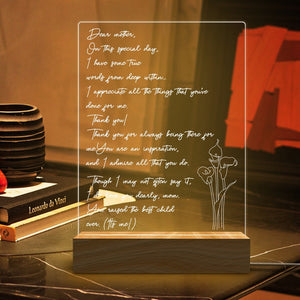 Dear mother,
On this special day,
I have some true
words from deep within.
I appreciate all the things that you've
done for me.
Thank you!
Thank you for always being there for
me. You are an inspiration,
and I admire all that you do.
Though I may not often say it,
I dearly, mom.
You raised the best child
ever. (It's me!)
Leonardo da Vinci